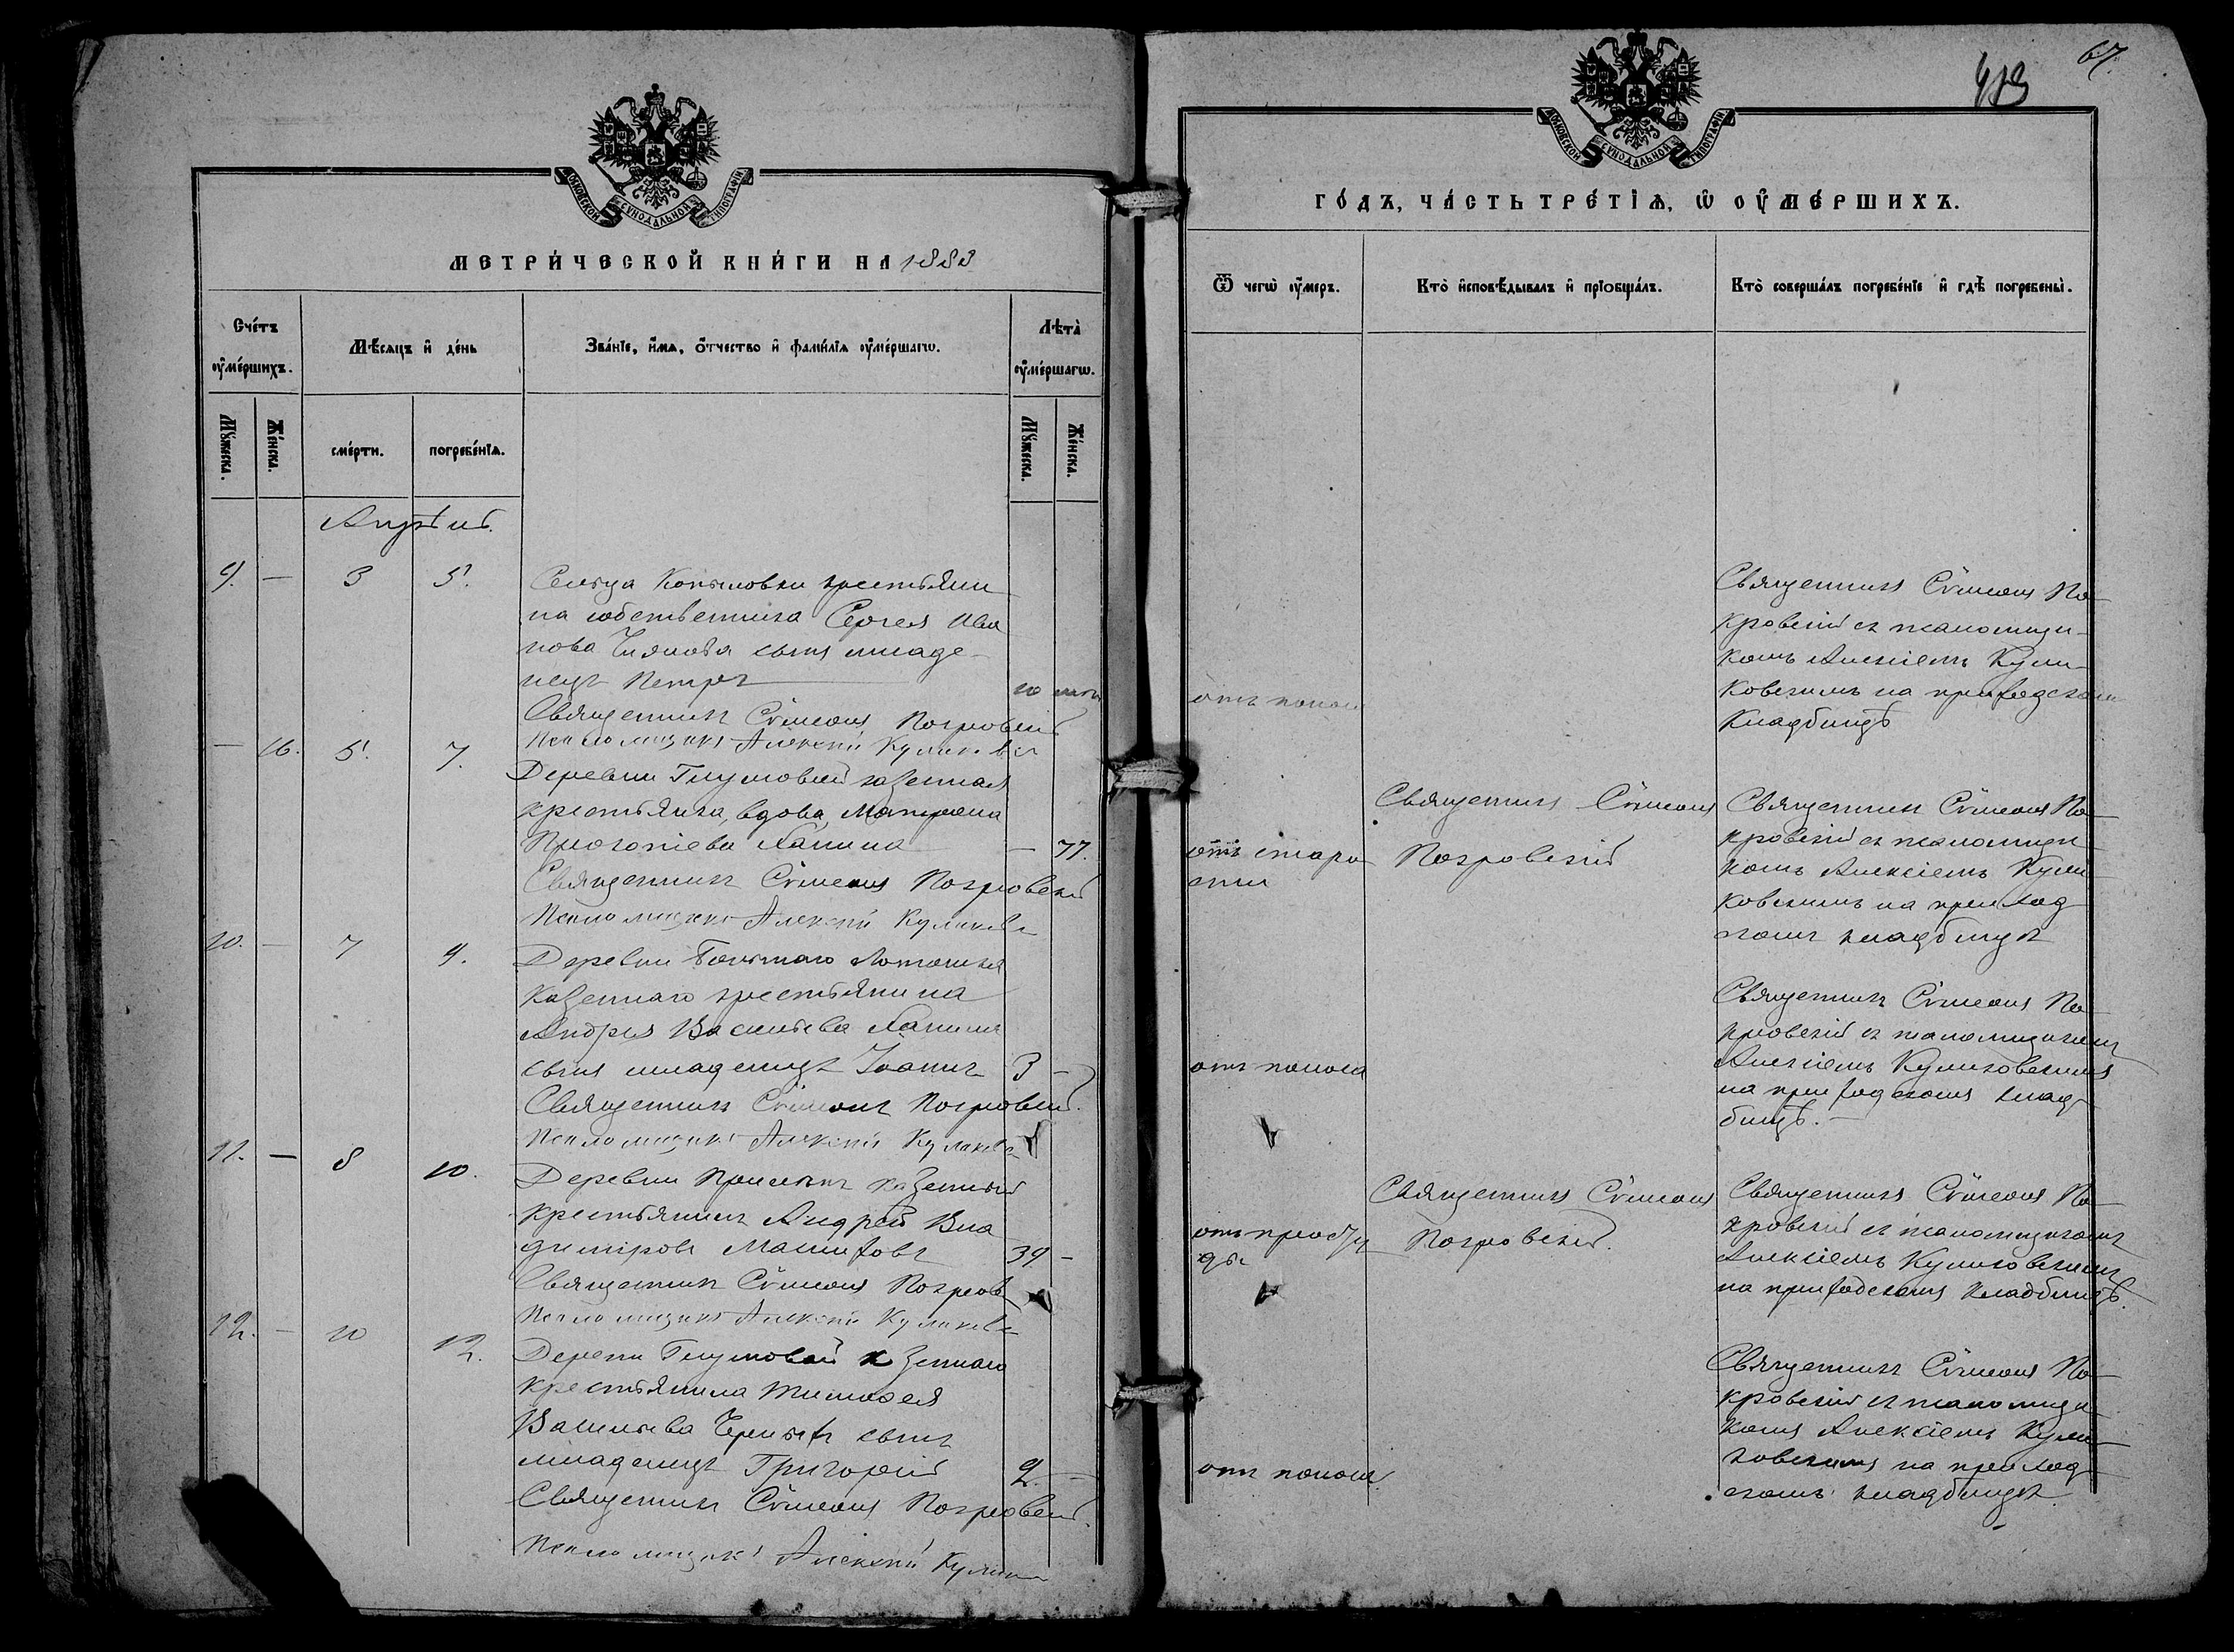 МОСКОВСКОЙ СѴНОДАЛЬНОЙ ТИПОГРАФІИ
МЕТРИ́ЧЕСКОЙ КНИ́ГИ НА 1883
Сче́тъ оу҆ме́ршихъ.
Мѣ́сяцъ и҆ де́нь
Зва́нїе, и҆́мѧ, ѻ҆́тчество и҆ фами́лїѧ оу҆ме́ршагѡ.
Лѣта̀ оу҆ме́ршагѡ.
Мꙋ́жеска.
Же́нска.
сме́рти.
погребе́нїѧ.
Мꙋ́жеска.
Же́нска.
Апрѣль.
9. — 3 5.
Сельца Копыловки крестьяни
на собственника Сергея Ива
нова сынъ младе
нецъ Петръ 10 
Священникъ Сѵмеонъ Покровскій
Псаломщикъ Алексѣй Куликовск
— 16. 5. 7.
Деревни Глумовой казенная
крестьянка, вдова, Матрона
Прокопіева Лапина — 77.
Священникъ Сѵмеонъ Покровскій
Псаломщикъ Алексѣй Куликовс
10. — 7 9.
Деревни Большаго Ломовиса
Казеннаго крестьянина
Андрея Васильева Лапина
сынъ младенецъ Іоаннъ 3 —
Священникъ Сѵмеонъ Покровскій.
Псаломщикъ Алексѣй Куликовс
11. — 8 10.
Деревни казенный
крестьянинъ Андрей Вла
диміровъ 39 —
Священникъ Сѵмеонъ Покров
Псаломщикъ Алексѣй Куликовс
12. — 10 12.
Деревни Глумовой к зеннаго
крестьянина Тимофея
Васильева сынъ
младенецъ Григорій 2. —
Священникъ Сѵмеонъ Покровскій.
Псаломщикъ Алексѣй Кулико
67.
413
МОСКОВСКОЙ СѴНОДАЛЬНОЙ ТИПОГРАФІИ
ГО́ДЪ, ЧА́СТЬ ТРЕ́ТІѦ, Ѡ҆ ОУ҆МЕ́РШИХЪ.
Ѿ чегѡ̀ оу҆́меръ.
Кто̀ и҆сповѣ́дывалъ и҆ прїобща́лъ.
Кто̀ соверша́лъ погребе́нїе и҆ гдѣ̀ погребены̀.
отъ поноса
Священникъ Сѵмеонъ По
кровскій съ псаломщи
комъ Алексіемъ Кули
ковскимъ на приходскомъ
Кладбищѣ
отъ старо
сти
Священникъ Сѵмеонъ
Покровскій
Священникъ Сѵмеонъ По
кровскій съ псаломщи
комъ Алексіемъ Кули
ковскимъ на приход
скомъ кладбищѣ
отъ поноса
Священникъ Сѵмеонъ По
кровскій съ псаломщикомъ
Алексіемъ Куликовскимъ
на приходскомъ клад
бищѣ. —
отъ просту
ды
Священникъ Сѵмеонъ
Покровскій.
Священникъ Сѵмеонъ По
кровскій съ псаломщикомъ
Алексіемъ Куликовскимъ
на приходскомъ кладбищѣ.
отъ поноса.
Священникъ Сѵмеонъ По
кровскій съ псаломщи
комъ Алексіемъ Кули
ковскимъ на приход
скомъ кладбищѣ.